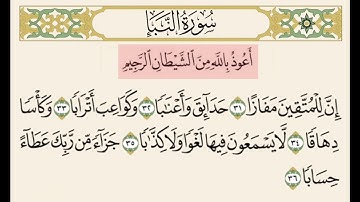 سُورَةُ النَّبَإِ
أَعُوذُ بِاللَّهِ مِنَ الشَّيْطَانِ الرَّجِيمِ
إِنَّ لِلْمُتَّقِينَ مَفَازًا ٣١ حَدَائِقَ وَأَعْنَابًا ٣٢ وَكَوَاعِبَ أَتْرَابًا ٣٣ وَكَأْسًا
دِهَاقًا ٣٤ لَّا يَسْمَعُونَ فِيهَا لَغْوًا وَلَا كِذَّابًا ٣٥ جَزَاءً مِّن رَّبِّكَ عَطَاءً
حِسَابًا ٣٦